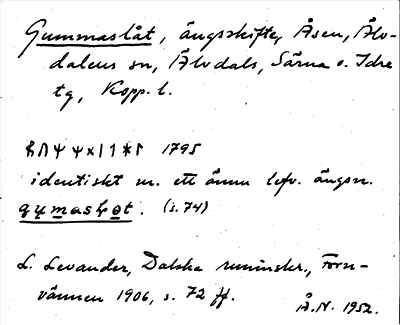 Gummaslåt, ängsskifte, Åsen, Älv-
dalens sn, Älvdals, Särna o. Idre
tg, Kopp. l.
1795
identiskt m. ett ännu lefv. ängsn.
(s. 74)
L. Levander, Dalska runinskr., Forn-
vännen 1906, s. 72 ff.
Å.N. 1952.